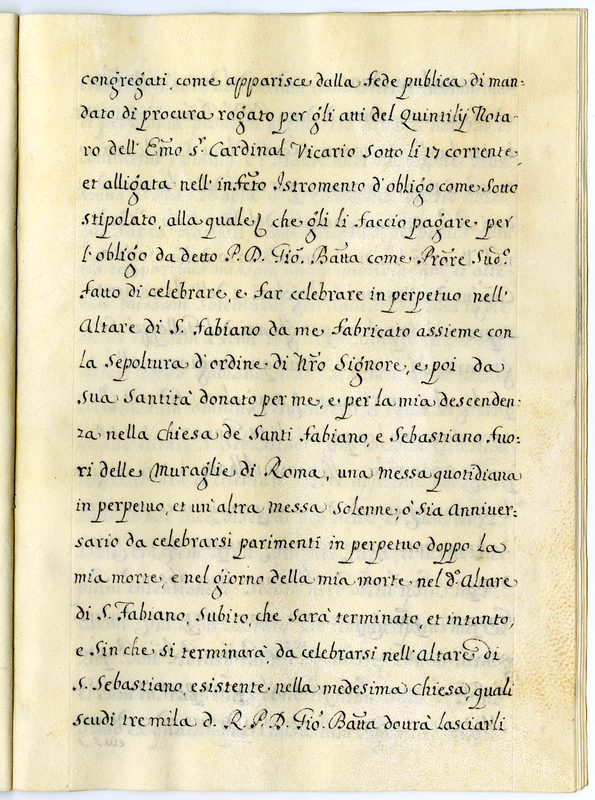 congregati, come apparisce dalla fede publica di man:
dato di procura rogato per gli atti del Quintilij Nota:
ro dell' Emo Sr. Cardinal Vicario sotto li 17 corrente,
et alligata nell' infrto Istromento d' obligo come sotto
stipolato, alla quale che gli li faccio pagare per
l' obligo da detto P. D. Gio. Batta come Prore suo.
fatto di celebrare, e far celebrare in perpetuo nell'
Altare di S. Fabiano da me fabricato assieme con
la sepoltura d' ordine di Nro Signore, e poi da
sua Santità donato per me, e per la mia descenden:
za nella Chiesa de Santi Fabiano, e Sebastiano fuo:
ri delle Muraglie di Roma, una messa quotidiana
in perpetuo, et un' altra messa solenne, ò sia Anniver:
sario da celebrarsi parimenti in perpetuo doppo la
mia morte, e nel giorno della mia morte nel do. Altare
di S. Fabiano, subito, che sarà terminato, et intanto,
e sin che si terminarà, da celebrarsi nell' Altare di
S. Sebastiano, esistente nella medesima Chiesa, quali
scudi tre mila d. R. P. D. Gio. Batta dourà lasciarli